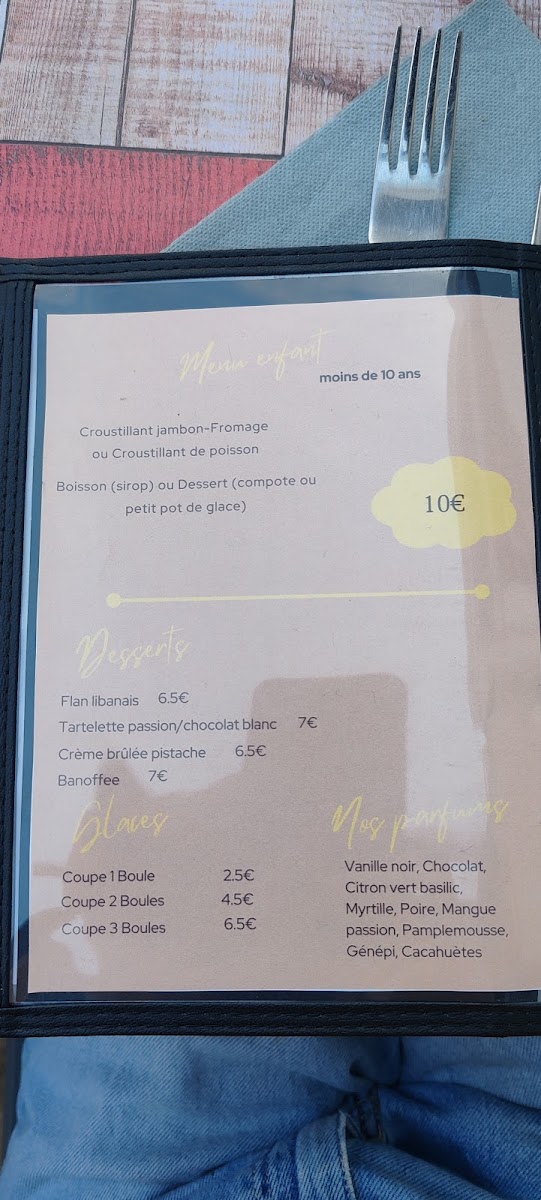 Menu enfant
moins de 10 ans
Croustillant jambon-Fromage
ou Croustillant de poisson
Boisson (sirop) ou Dessert (compote ou
petit pot de glace)
10€
Desserts
Flan libanais 6.5€
Tartelette passion/chocolat blanc 7€
Crème brûlée pistache 6.5€
Banoffee 7€
Glaces
Coupe 1 Boule 2.5€
Coupe 2 Boules 4.5€
Coupe 3 Boules 6.5€
Nos parfums
Vanille noir, Chocolat,
Citron vert basilic,
Myrtille, Poire, Mangue
passion, Pamplemousse,
Génépi, Cacahuètes